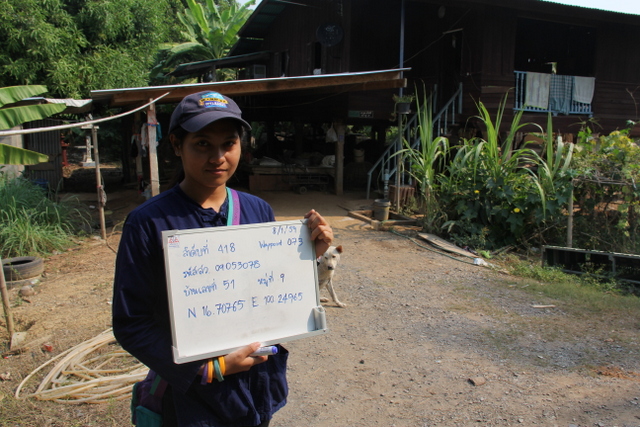 8/1/59
ลำดับที่ 418 Waypoint 073
รหัสตัว 09053075
บ้านเลขที่ 51 หมู่ที่ 9
N 16.70765 E 100.24965